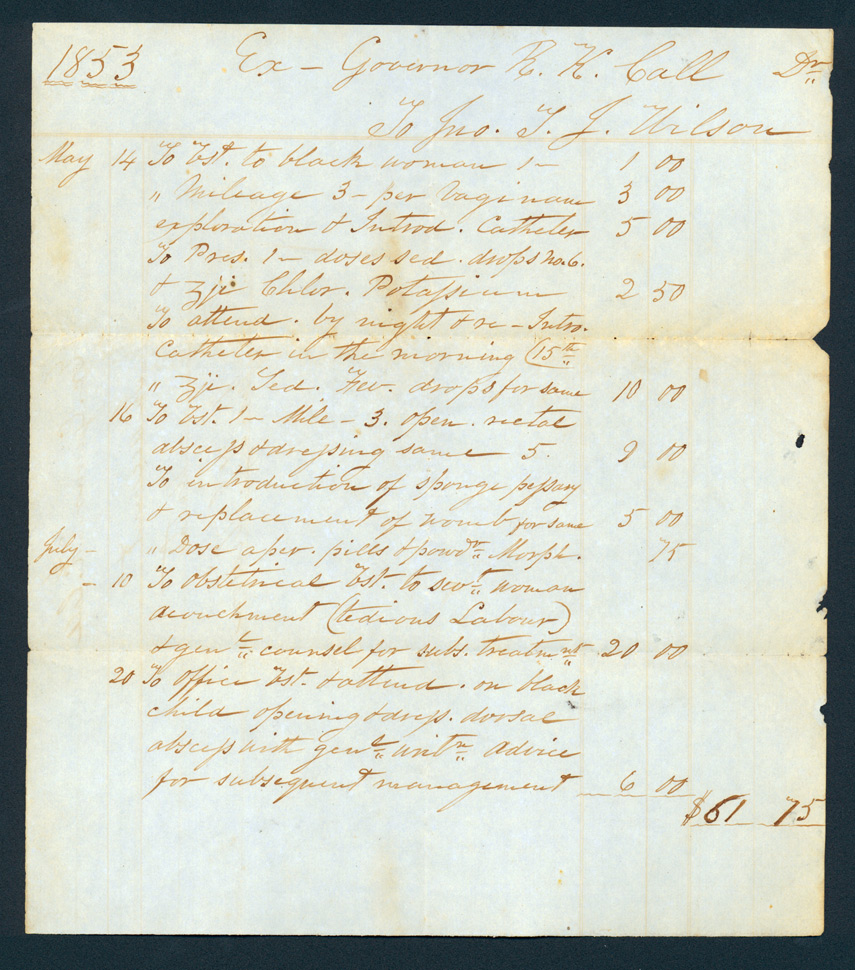 1853 Ex – Governor R. K. Call Dr
To Jno. T. J. Wilson
May 14 To Vst. to black woman 1– 1 00
" Mileage 3 – per Vaginam 3 00
exploration & Introd. Catheter 5 00
To Pres. 1– doses sed. drops no. 6.
& ʒji Chlor. Potassium 2 50
To attend. by night & re-Intro.
Catheter in the morning (15th
" ʒji. Sed. Fev. drops for same 10 00
16 To Vst. 1– Mile – 3. open. rectal
abscess & dressing same 5. 9 00
To introduction of sponge pessary
& replacement of womb for same 5 00
July – " Dose aper. pills & powdr Morph. 75
– 10 To obstetrical Vst. to servt woman
acouchment (tedious Labour)
& genl counsel for subs. treatmnt 20 00
20 To office Vst. & attend. on black
child opening & dress. dorsal
abscess with genl writn advice
for subsequent management 6 00
$61 75